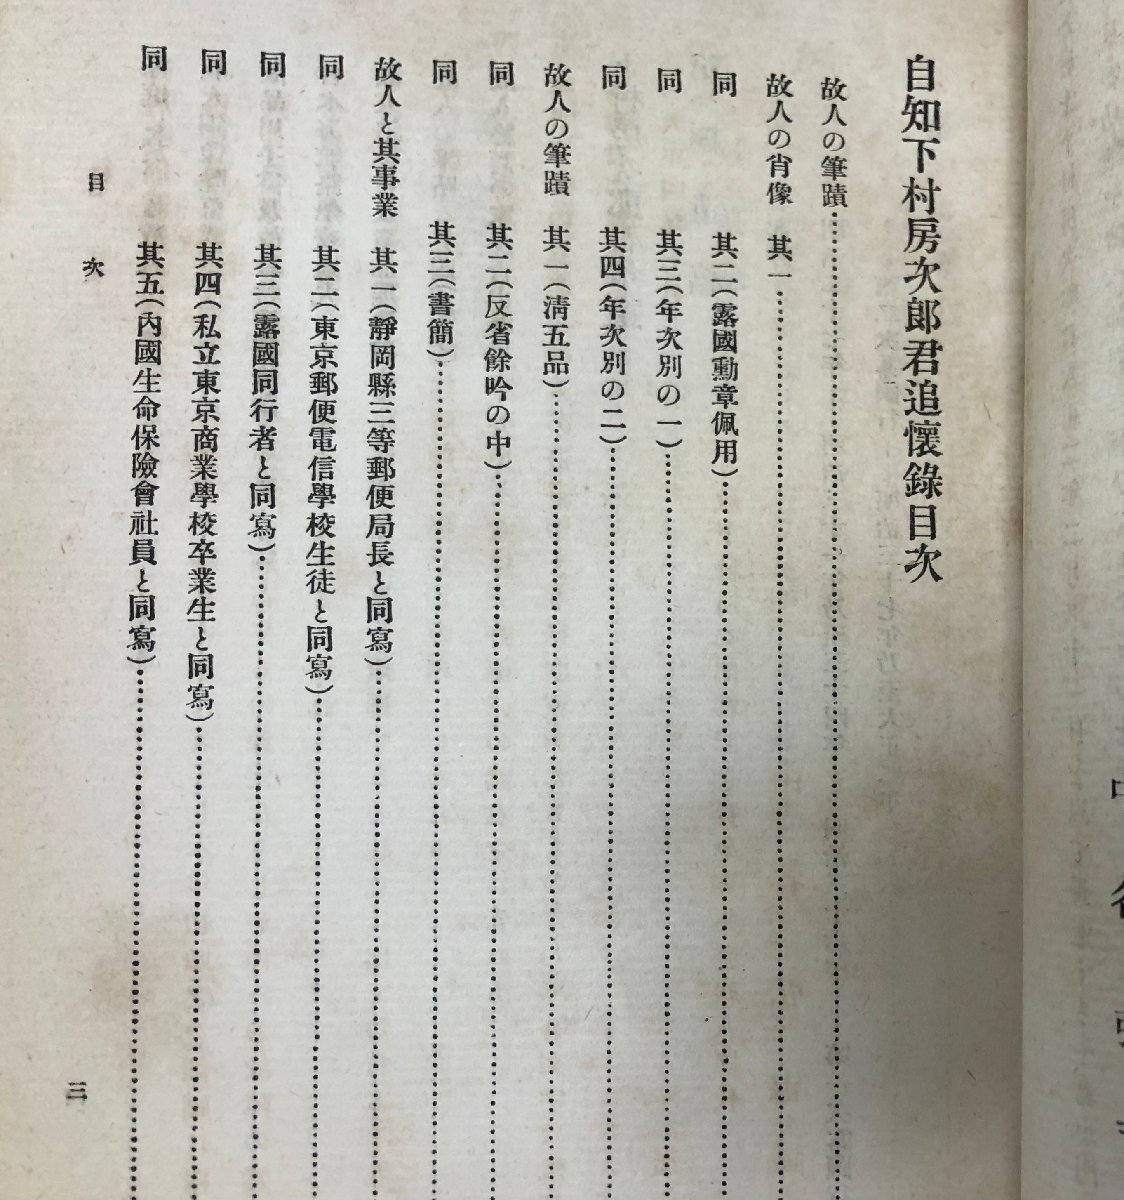 自知下村房次郎君追懷錄目次
故人の筆蹟
故人の肖像 其一
同 其二(露國勳章佩用)
同 其三(年次別の一)
同 其四(年次別の二)
故人の筆蹟 其一(淸五品)
同 其二(反省餘吟の中)
同 其三(書簡)
故人と其事業 其一(靜岡縣三等郵便局長と同寫)
同 其二(東京郵便電信學校生徒と同寫)
同 其三(露國同行者と同寫)
同 其四(私立東京商業學校卒業生と同寫)
同 其五(內國生命保險會社員と同寫)
目次
三